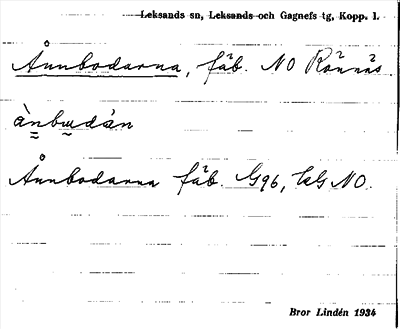 Leksands sn, Leksands och Gagnefs tg, Kopp. l.
Ånnbodarna, fäb. NO Rönnäs.
ànbudàn
Ånnbodarna fäb. G96, kG NO.
Bror Lindén 1934